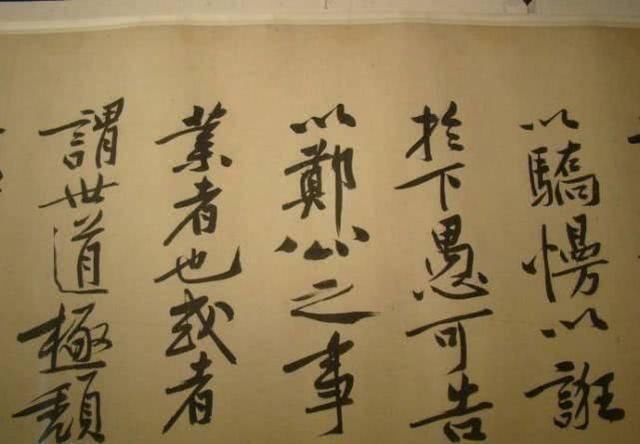 以驕慢以誑
於下愚可告
以鄭公之事
業者也或者
謂世道極頹